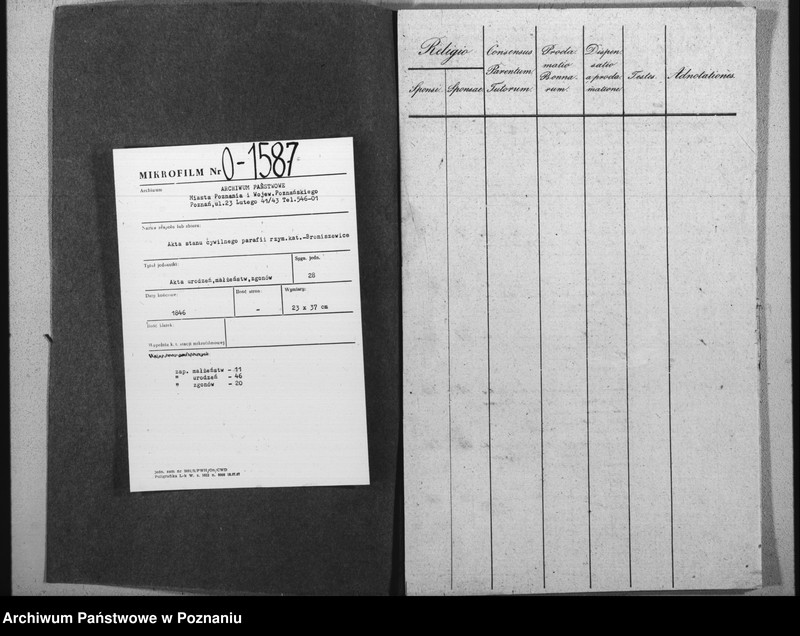 MIKROFILM Nr O-1587
Archiwum:
ARCHIWUM PAŃSTWOWE
Miasta Poznania i Wojew.Poznańskiego
Poznań,ul.23 Lutego 41/43 Tel.546-01
Nazwa zespołu lub zbioru:
Akta stanu cywilnego parafii rzym.kat.-Broniszewice
Tytuł jednostki:
Sygn. jedn.
Akta urodzeń,małżeństw,zgonów
28
Daty końcowe:
Ilość stron:
Wymiary:
1846
-
23 x 37 cm
Ilość klatek:
zap. małżeństw -11
" urodzeń -46
" zgonów -20
Religio
Sponsi.
Sponsae
Consensus
Parentum
Tutorum.
Procla-
matio
Banno-
rum.
Dispen-
satio
a procla-
matione.
Testes.
Adnotationes.
Archiwum Państwowe w Poznaniu